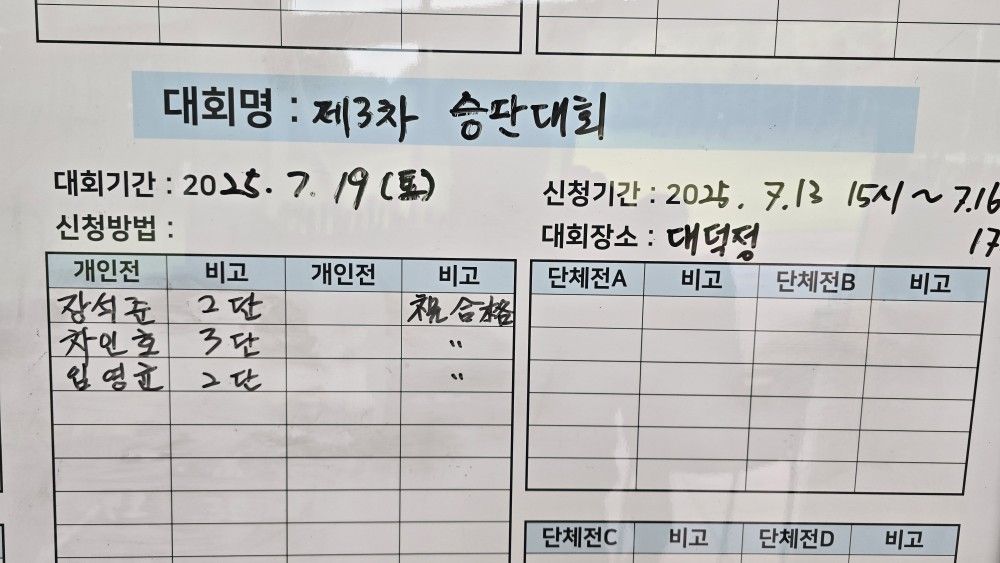 대회명 : 제3차 승단대회
대회기간 : 2025. 7. 19 (토)
신청기간 : 2025. 7.13 15시 ~ 7.16
신청방법 :
대회장소 : 대덕정 17
개인전 비고 개인전 비고
장석준 2단 合格
차인호 3단 〃
임영균 2단 〃
단체전A 비고 단체전B 비고
단체전C 비고 단체전D 비고